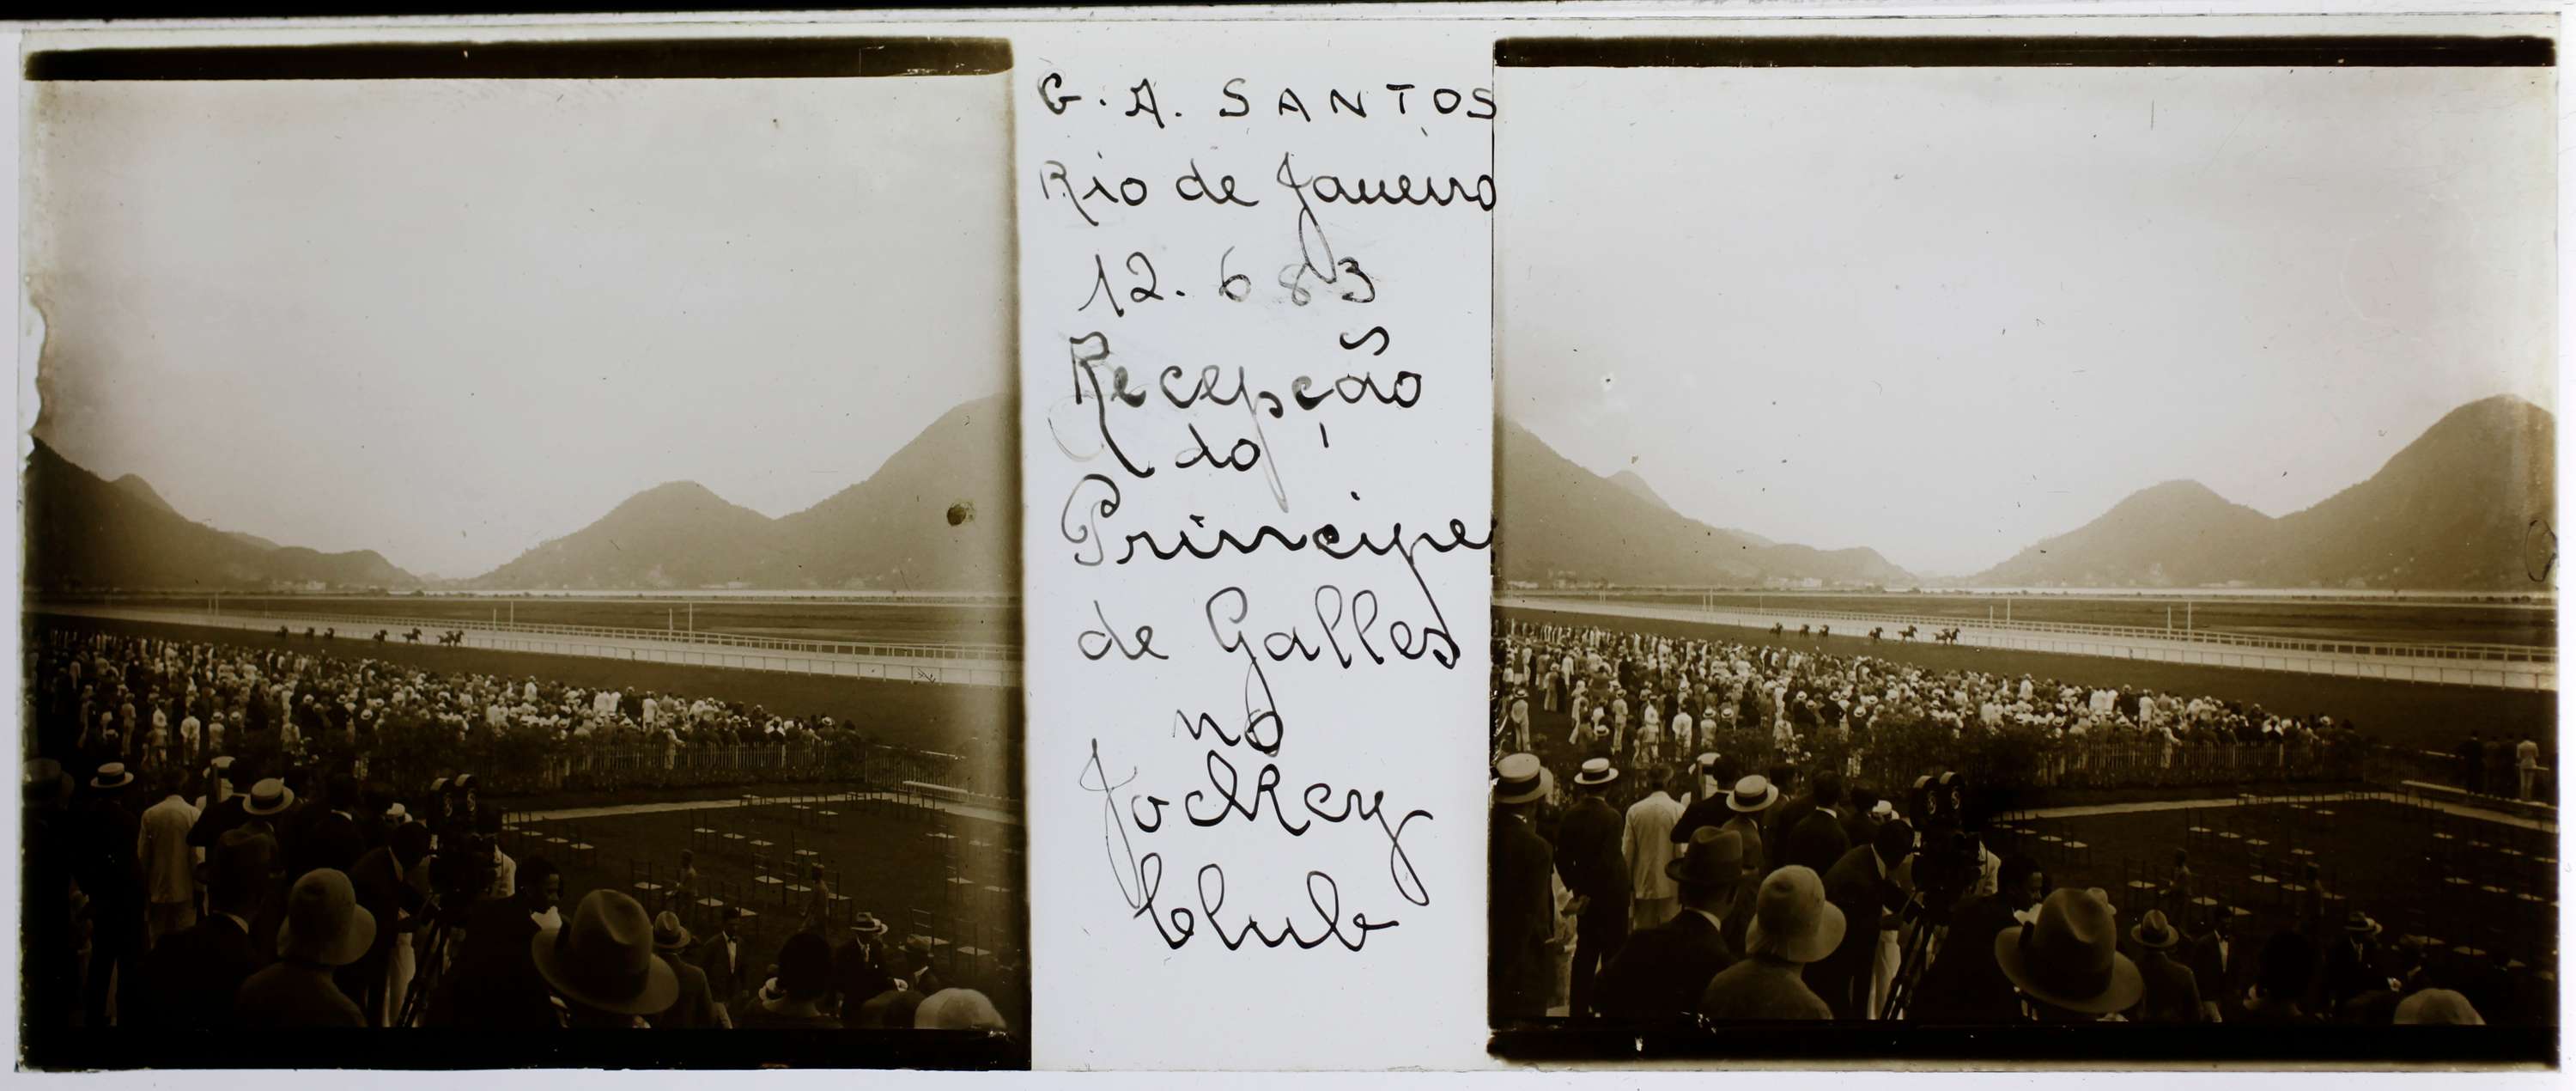 G. A. SANTOS
Rio de Janeiro
12.683
Recepção
do
Principe
de Galles
no
Jockey
Club